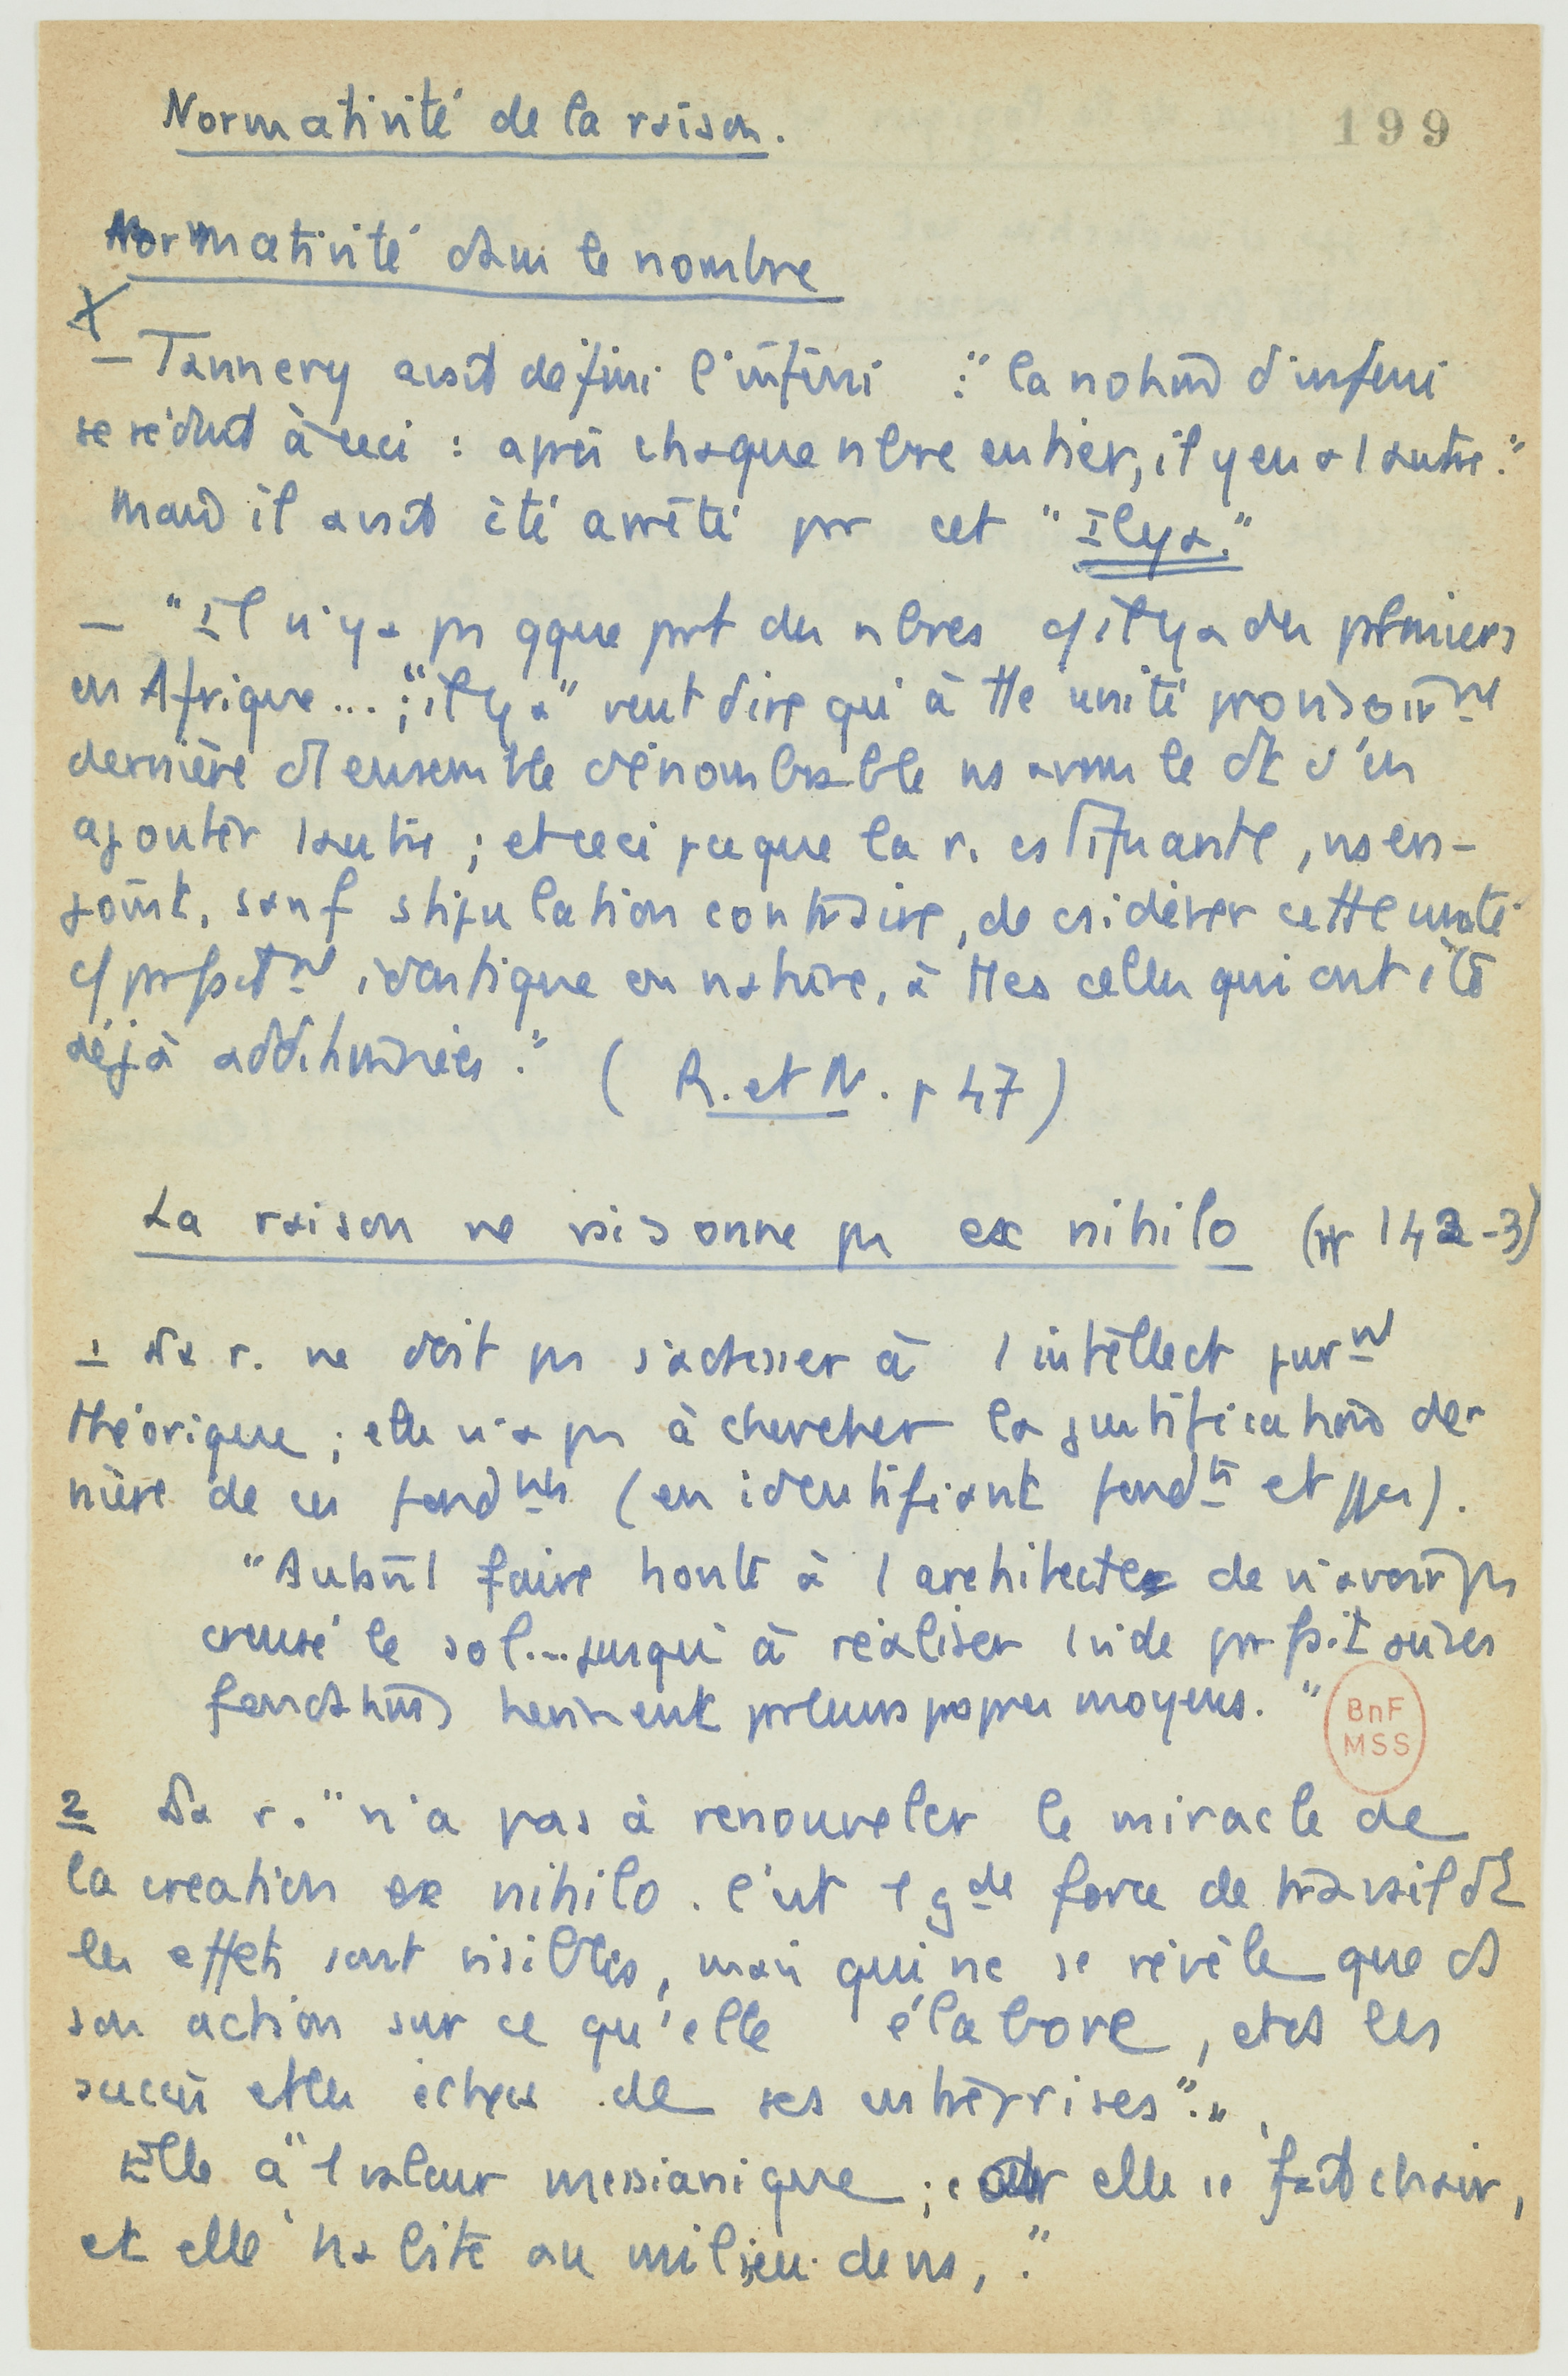 Normativité de la raison.
199
Normativité dans le nombre
X
– Tannery avait défini l'infini : "la notion d'infini
se réduit à ceci : après chaque nbre entier, il y en a 1 autre."
mais il avait été arrêté par cet "Il y a."
– "Il n'y a pas qque part des nbres c/ il y a des palmiers
en Afrique... ; "il y a" veut dire qu'à tte unité provisoirnt
dernière d'1 ensemble dénombrable ns avons le dt d'en
ajouter 1 autre ; et ceci pce que la r. cstituante, ns en-
joint, sauf stipulation contraire, de csidérer cette unité
c/ parfaitnt identique en nature, à ttes celles qui ont été
déjà additionnées." (R. et N. p 47)
La raison ne raisonne pas ex nihilo (pp 142-3)
1 La r. ne doit pas s'adresser à 1 intellect purnt
théorique ; elle n'a pas à chercher la justification der-
nière de ces fondnts (en identifiant fondts et ppes).
"Autant faire honte à l architecte de n'avoir pas
creusé le sol... jusqu'à réaliser 1 vide parfait où ses
fondations tiennent par leurs propres moyens."
BnF
MSS
2 La r. "n'a pas à renouveler le miracle de
la création ex nihilo. C'est 1 gde force de travail dt
les effets sont visibles, mais qui ne se révèle que ds
son action sur ce qu'elle élabore, et ds les
succès et les échecs de ses entreprises"..
Elle a "1 valeur messianique ; car elle se fait chair,
et elle habite au milieu de ns,."